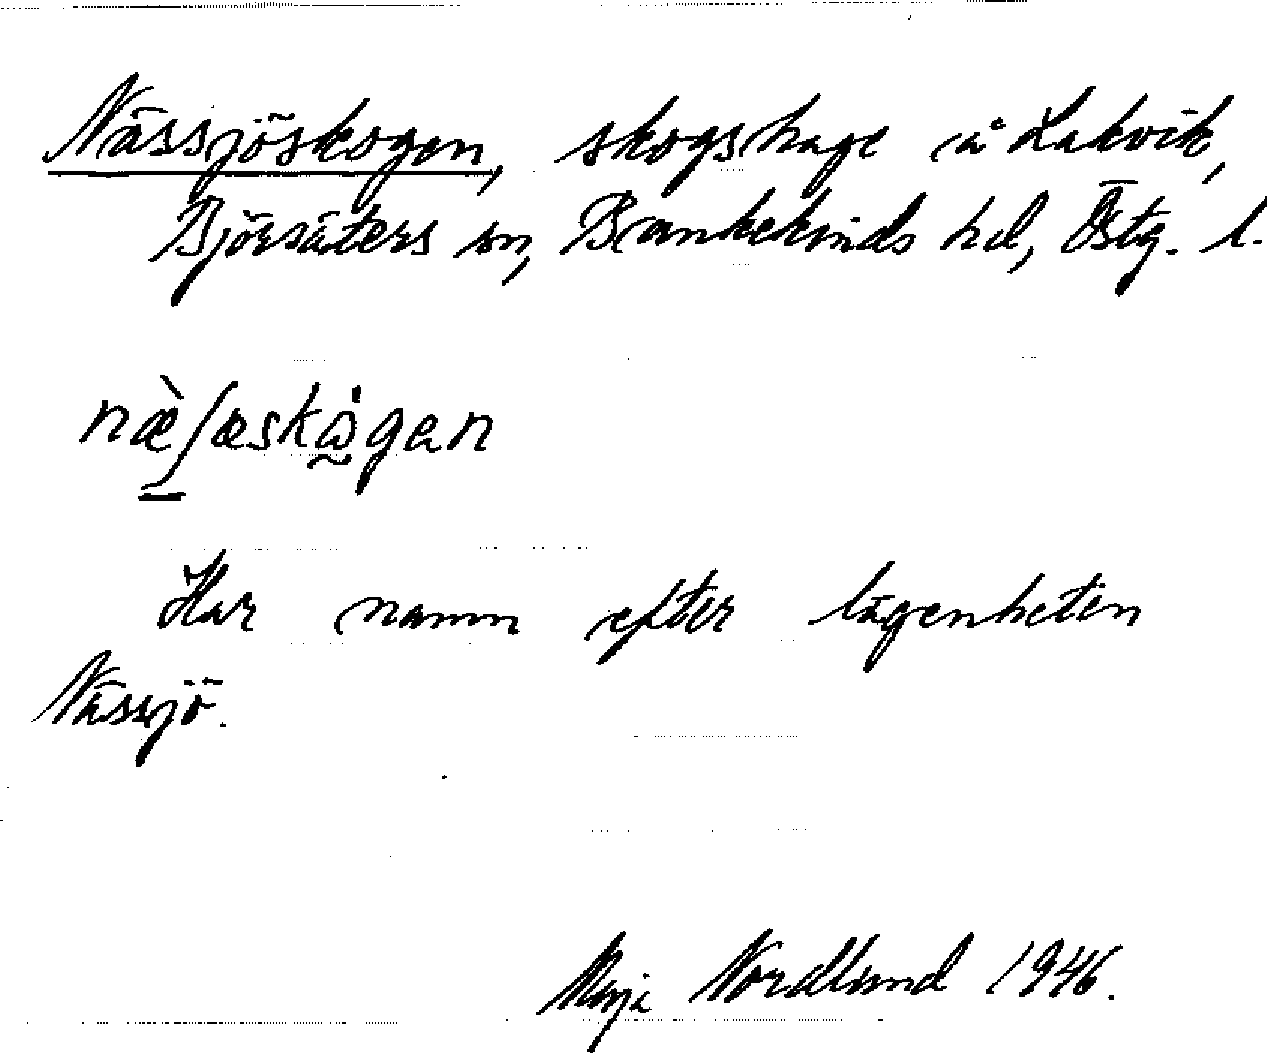 Nässjöskogen, skogshage å Lakvik,
Björsäters sn, Bankekinds hd, Östg. l.
næ̀ʃæskå̀gan
Har namn efter lägenheten
Nässjö.
Maja Nordlund 1946.